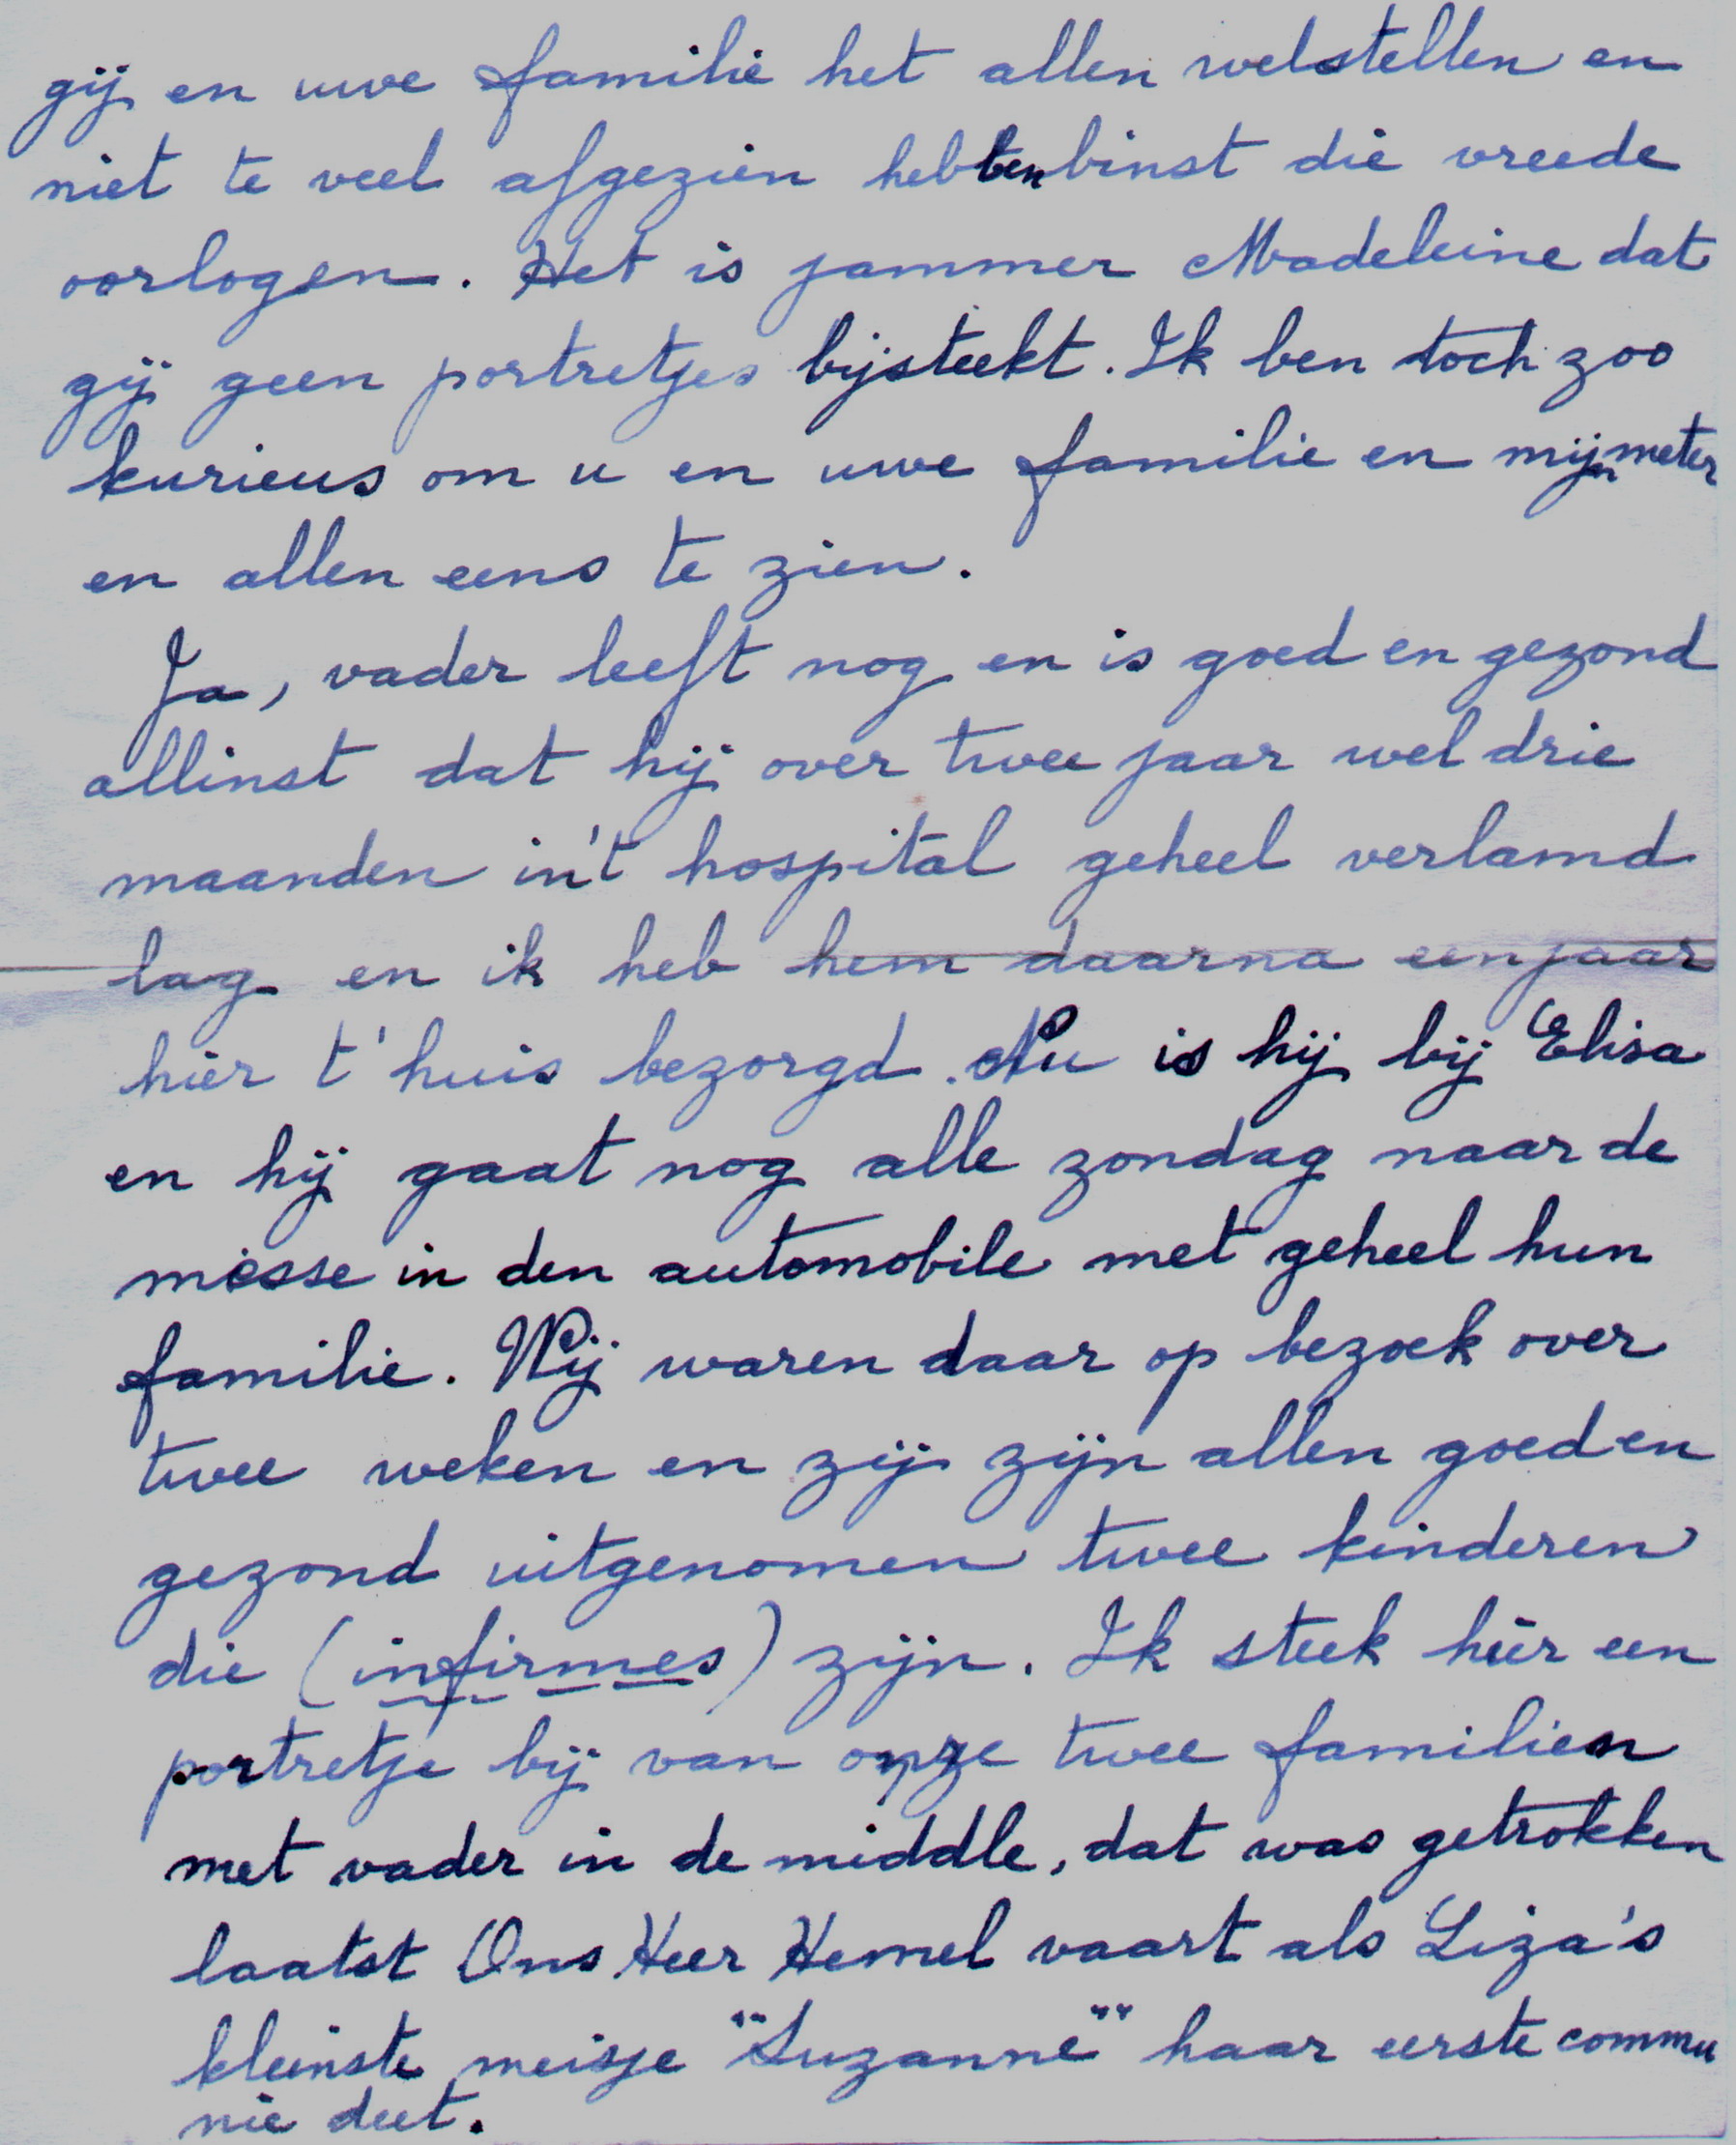 gij en uwe familie het allen welstellen en
niet te veel afgezien hebben binst die vreede
oorlogen. Het is jammer Madeleine dat
gij geen portretjes bijsteekt. Ik ben toch zoo
kurieus om u en uwe familie en mijn meter
en allen eens te zien.
Ja, vader leeft nog en is goed en gezond
allinst dat hij over twee jaar wel drie
maanden in't hospital geheel verlamd
lag en ik heb hem daarna een jaar
hier t'huis bezorgd. Nu is hij bij Elisa
en hij gaat nog alle zondag naar de
misse in den automobile met geheel hun
familie. Wij waren daar op bezoek over
twee weken en zij zijn allen goed en
gezond uitgenomen twee kinderen
die (infirmes) zijn. Ik steek hier een
portretje bij van onze twee familien
met vader in de middle, dat was getrokken
laatst Ons Heer Hemel vaart als Liza's
kleinste meisje "Suzanne" haar eerste commu
nie deet.